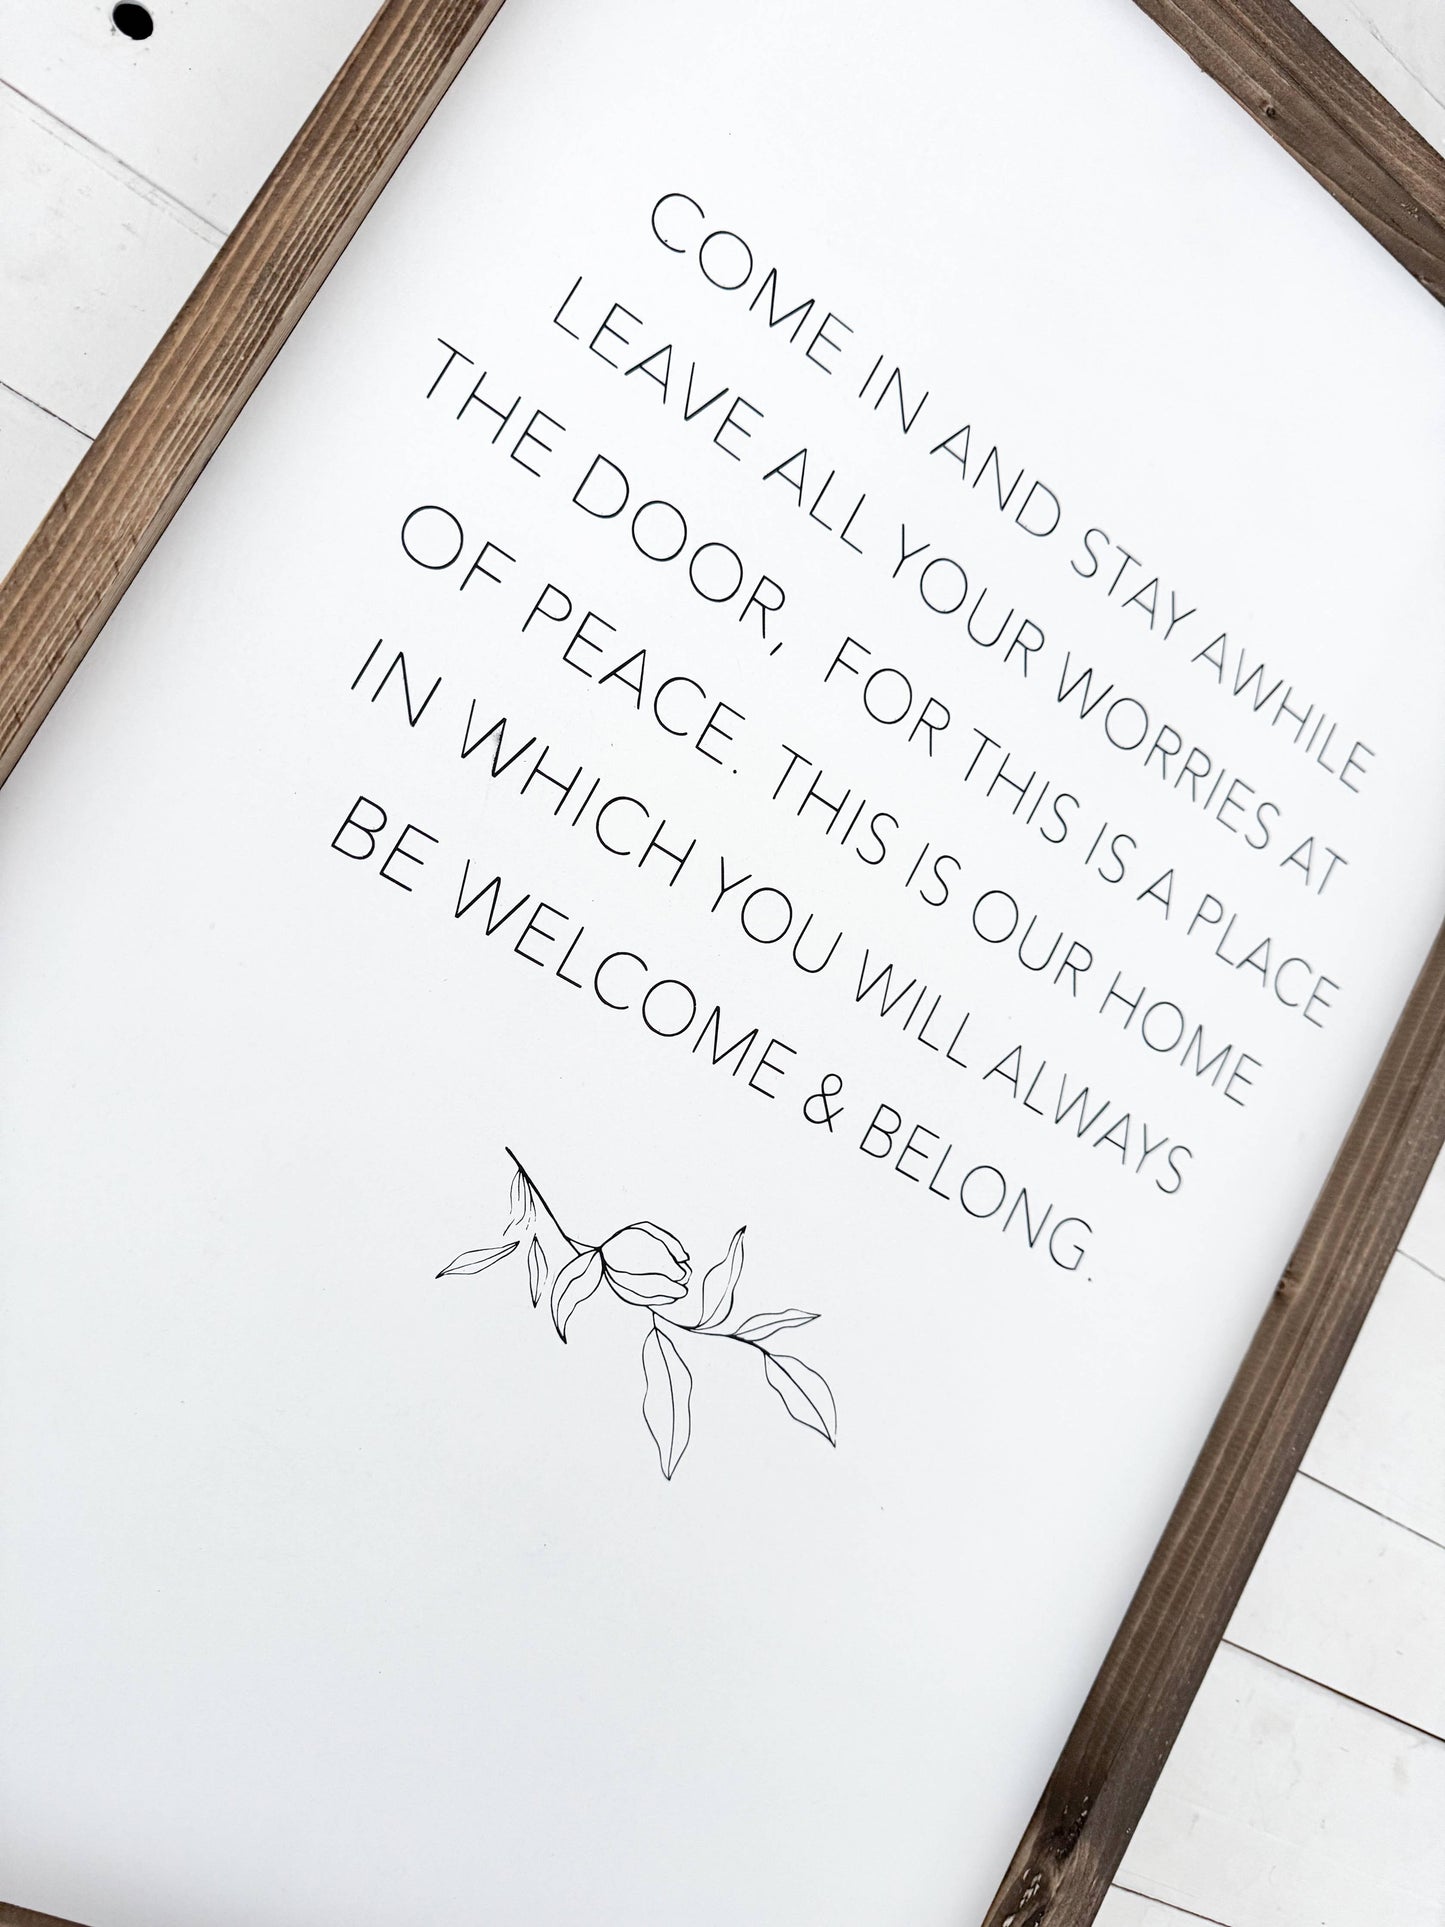 COME IN AND STAY AWHILE
LEAVE ALL YOUR WORRIES AT
THE DOOR, FOR THIS IS A PLACE
OF PEACE. THIS IS OUR HOME
IN WHICH YOU WILL ALWAYS
BE WELCOME & BELONG.